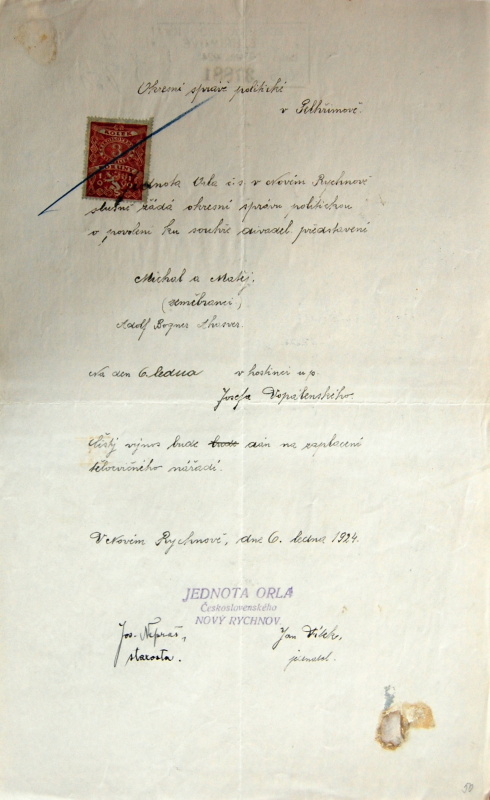 37881
Okresní správě politické
v Pelhřimově.
KOLEK
3
KORUNY
Jednota Orla čs. v Novém Rychnově
slušně žádá okresní správu politickou
o povolení ku souhře divadel. představení
Michal a Matěj.
(zeměbranci)
Adolf Bogner
Na den 6 ledna v hostinci u p.
Josefa Dopátenského.
Čistý výnos bude bude dán na zaplacení
tělocvičného nářadí.
V Novém Rychnově, dne 6. ledna 1924.
JEDNOTA ORLA
Československého
NOVÝ RYCHNOV.
Jos. Nepraš, Jan Vítek,
starosta. jednatel.
50